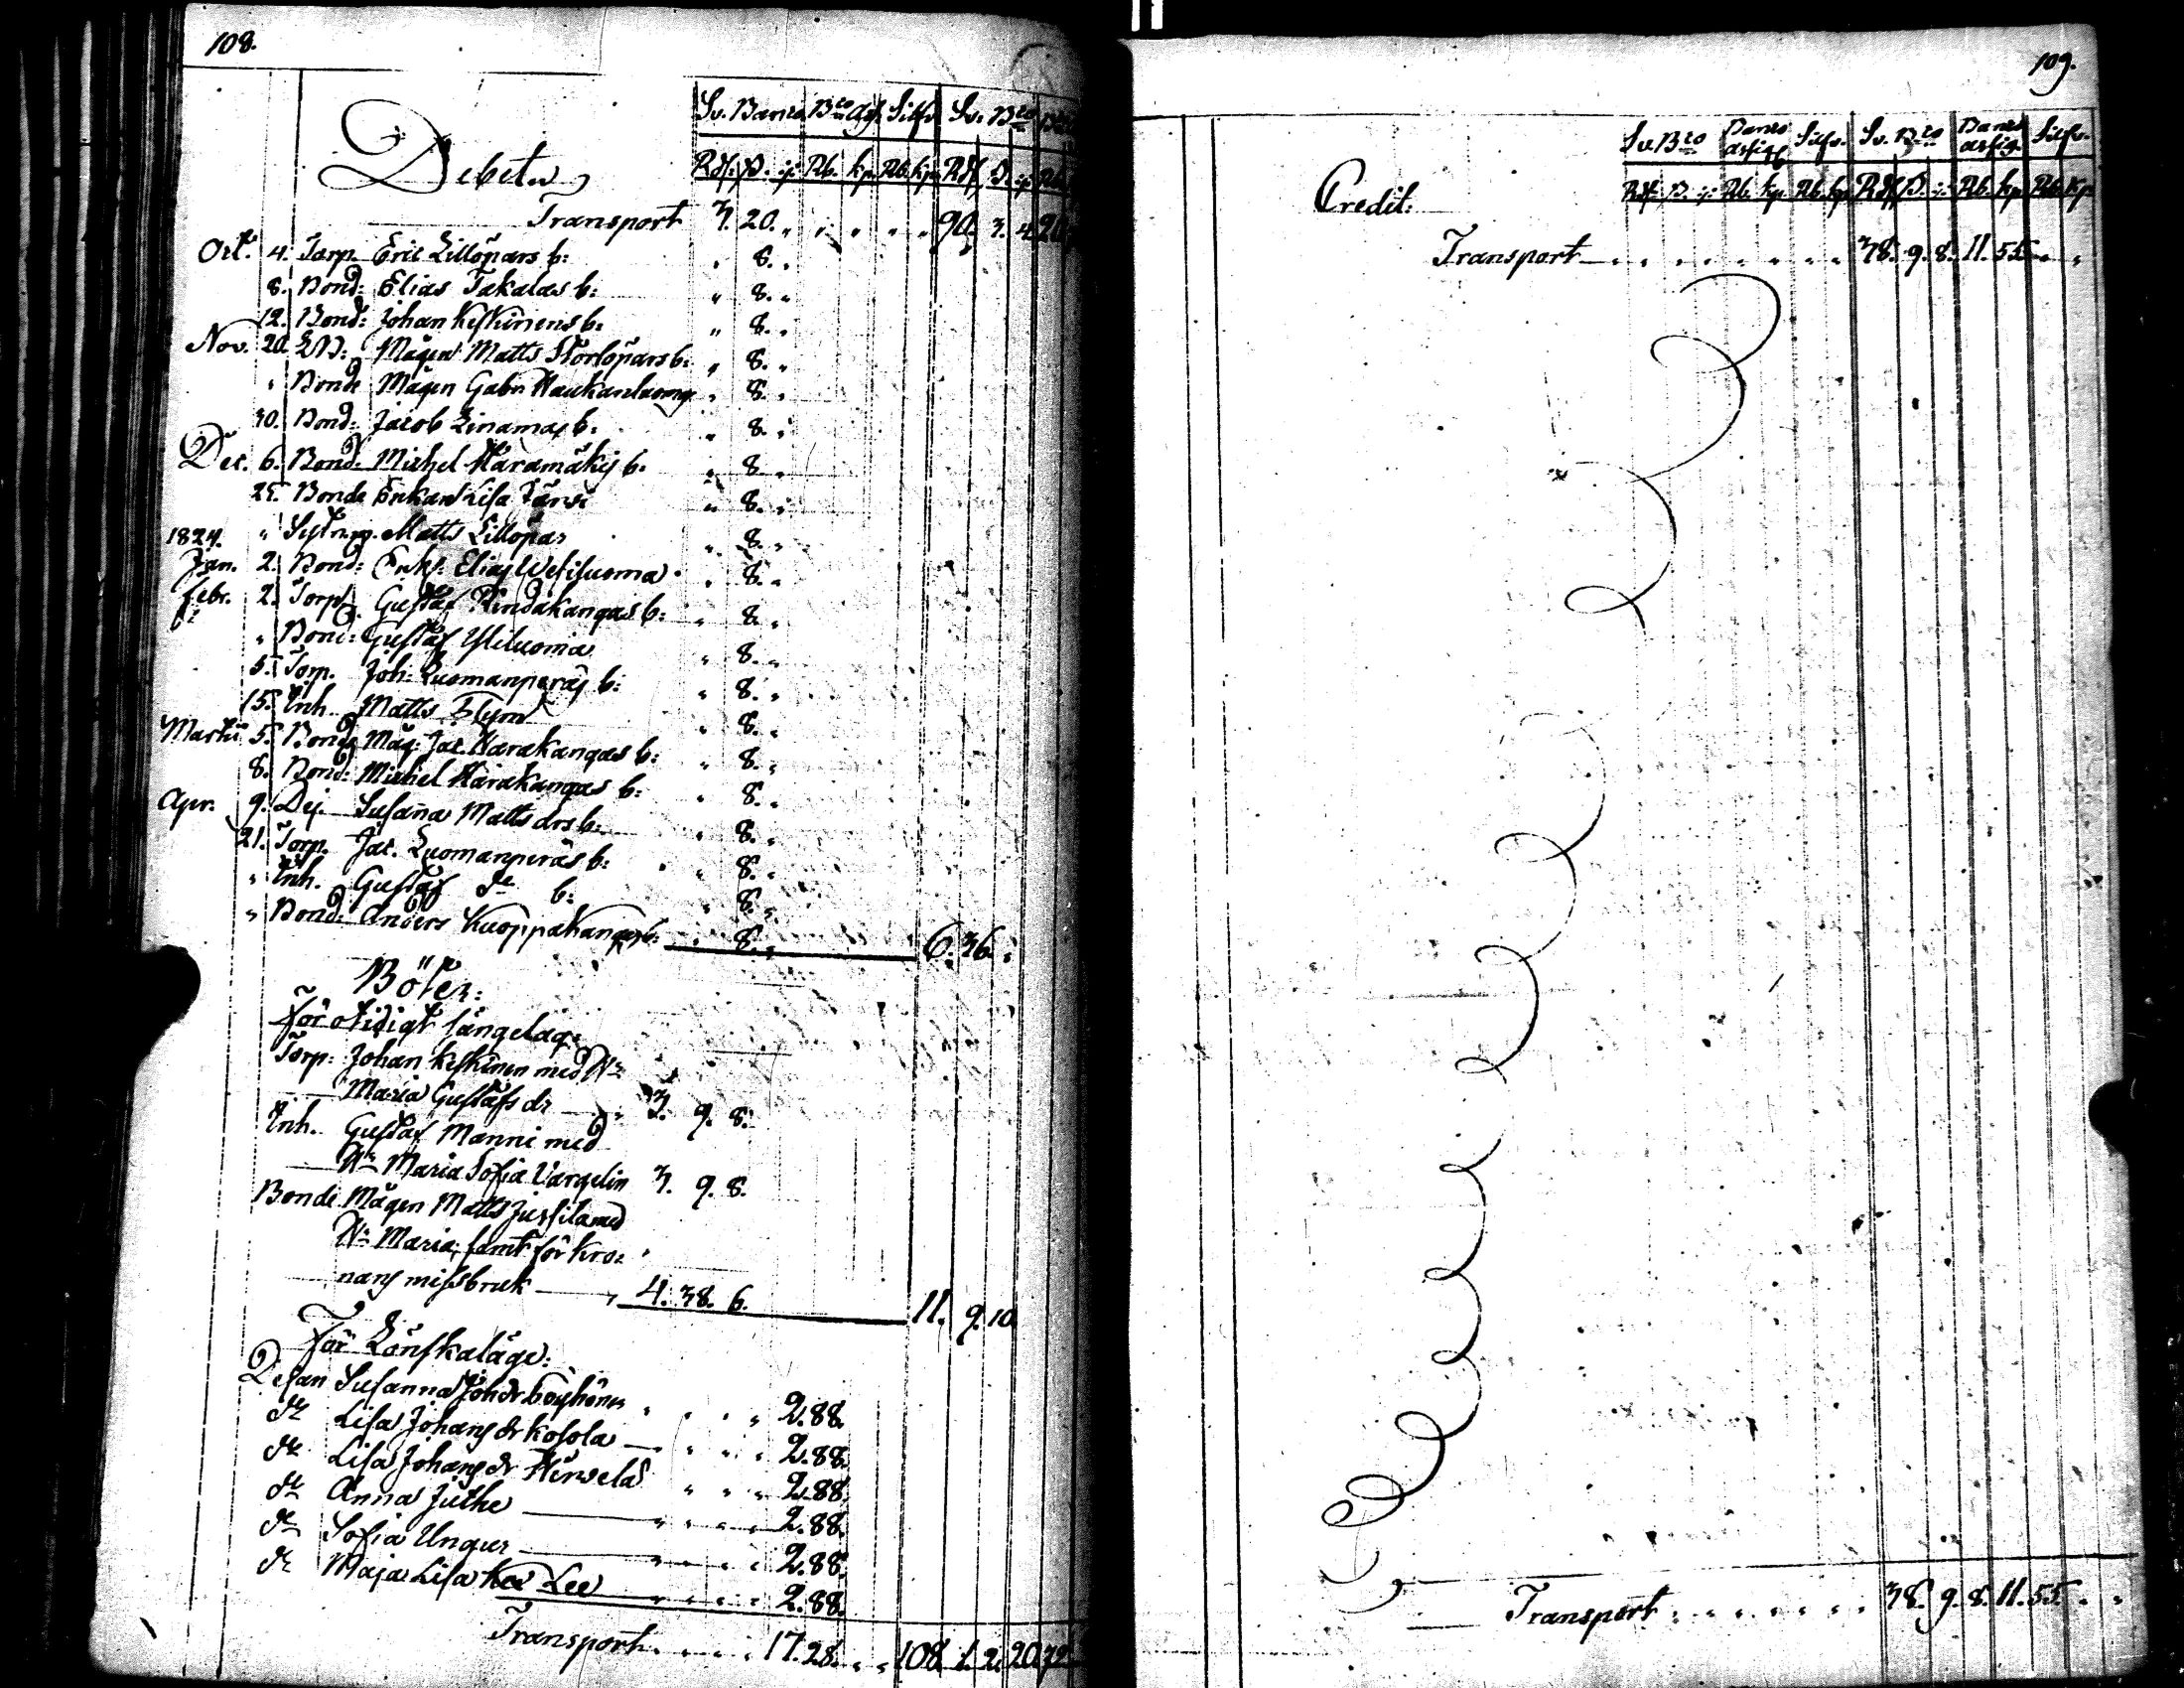 108.
Sv. Banco Bco Asg. Silfv. Sv. Bco
Debet.
Rdr. ß. rp. Rb. kp. Rb. kp. Rdr ß. rp. Rb.
Transport 3. 20. „ „ „ „ „ 90. 3. 4. 20.
Oct. 4. Torp. Eric Lillöpars b: „ 8. „
8. Bond: Elias Takalas b: „ 8. „
12. Bond: Johan Keskinens b: „ 8. „
Nov. 20. Mågen Matts Storlöpars b: „ 8. „
„ Bonde Mågen Gabr. „ 8. „
30. Bond: Jacob Linamas b: „ 8. „
Dec. 6. Bond: Michel Häramäkis b: „ 8. „
25. Bonde Enkan Lisa Järvi „ 8. „
1824. „ Matts Lillöpar „ 8. „
Jan. 2. Bond: Enk. Elias Wesiluoma „ 8. „
Febr. 2. Torp. Gustaf Rindakangas b: „ 8. „
„ Bond: Gustaf Yliluoma „ 8. „
5. Torp. Joh: Luomanperäs b: „ 8. „
15. Inh. Matts Flym „ 8. „
Martii 5. Bonde Måg: Jac. Harakangas b: „ 8. „
8. Bond: Michel Harakangas b: „ 8. „
Apr. 9. Pig. Susana Matts drs b: „ 8. „
21. Torp. Jac. Luomanperäs b: „ 8. „
„ Inh. Gustaf do b: „ 8. „
„ Bond: Anders Kuoppakangas b: „ 8. „ 6. 36. „
Böter:
För otidigt sängelag:
Torp: Johan Keskinen med H:
Maria Gustafs dr „ 3. 9. 8.
Inh. Gustaf Manni med
H: Maria Sofia Vargelin 3. 9. 8.
Bonde Mågen Matts Jussila med
H: Maria, samt för kro:
nans missbruk 4. 38. 6. 11. 9. 10.
För Lönskaläge:
Pigan Susanna Joh dr „ „ „ „ 2. 88.
do Lisa Johans dr Kosola „ „ „ 2. 88.
do Lisa Johans dr Hirvelä „ „ „ 2. 88.
do Anna Juthe „ „ „ „ 2. 88.
do Sofia Ungur „ „ „ „ 2. 88.
do Maja Lisa Lee „ „ „ „ 2. 88.
Transport „ „ „ „ 17. 28. „ „ 108. 1. 2. 20. 72
109.
Sv. Bco Banco assig. Silfv. Sv. Bco Banco assig. Silfv.
Credit:
Rdr. ß. rp. Rb. kp. Rb. kp. Rdr ß. rp. Rb. kp. Rb. kp.
Transport „ „ „ „ „ „ „ 38. 9. 8. 11. 55. „ „
Transport „ „ „ „ „ „ „ 38. 9. 8. 11. 55. „ „